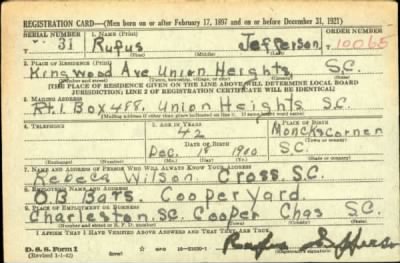 REGISTRATION CARD—(Men born on or after February 17, 1897 and on or before December 31, 1921)
SERIAL NUMBER 1. NAME (Print) ORDER NUMBER
31 Rufus Jefferson 10065
(First) (Middle) (Last)
2. PLACE OF RESIDENCE (Print)
Kingwood Ave Union Heights, S.C.
(Number and street) (Town, township, village, or city) (County) (State)
[THE PLACE OF RESIDENCE GIVEN ON THE LINE ABOVE WILL DETERMINE LOCAL BOARD
JURISDICTION; LINE 2 OF REGISTRATION CERTIFICATE WILL BE IDENTICAL]
3. MAILING ADDRESS
Rt. 1 Box 458. Union Heights S.C.
[Mailing address if other than place indicated on line 2. If same insert word same]
4. TELEPHONE 5. AGE IN YEARS 6. PLACE OF BIRTH
42 Moncks Corner
DATE OF BIRTH (Town or county)
Dec. 1900 S.C.
(Exchange) (Number) (Mo.) (Day) (Yr.) (State or country)
7. NAME AND ADDRESS OF PERSON WHO WILL ALWAYS KNOW YOUR ADDRESS
Rebeca Wilson. Cross. S.C.
8. EMPLOYER'S NAME AND ADDRESS
Cooper Yard.
9. PLACE OF EMPLOYMENT OR BUSINESS
Charleston, SC. Cooper Chas S.C.
(Number and street or R. F. D. number) (Town) (County) (State)
I AFFIRM THAT I HAVE VERIFIED ABOVE ANSWERS AND THAT THEY ARE TRUE.
D. S. S. Form 1 GPO Rufus Jefferson
(Revised 1-1-42) (over) (Registrant's signature)